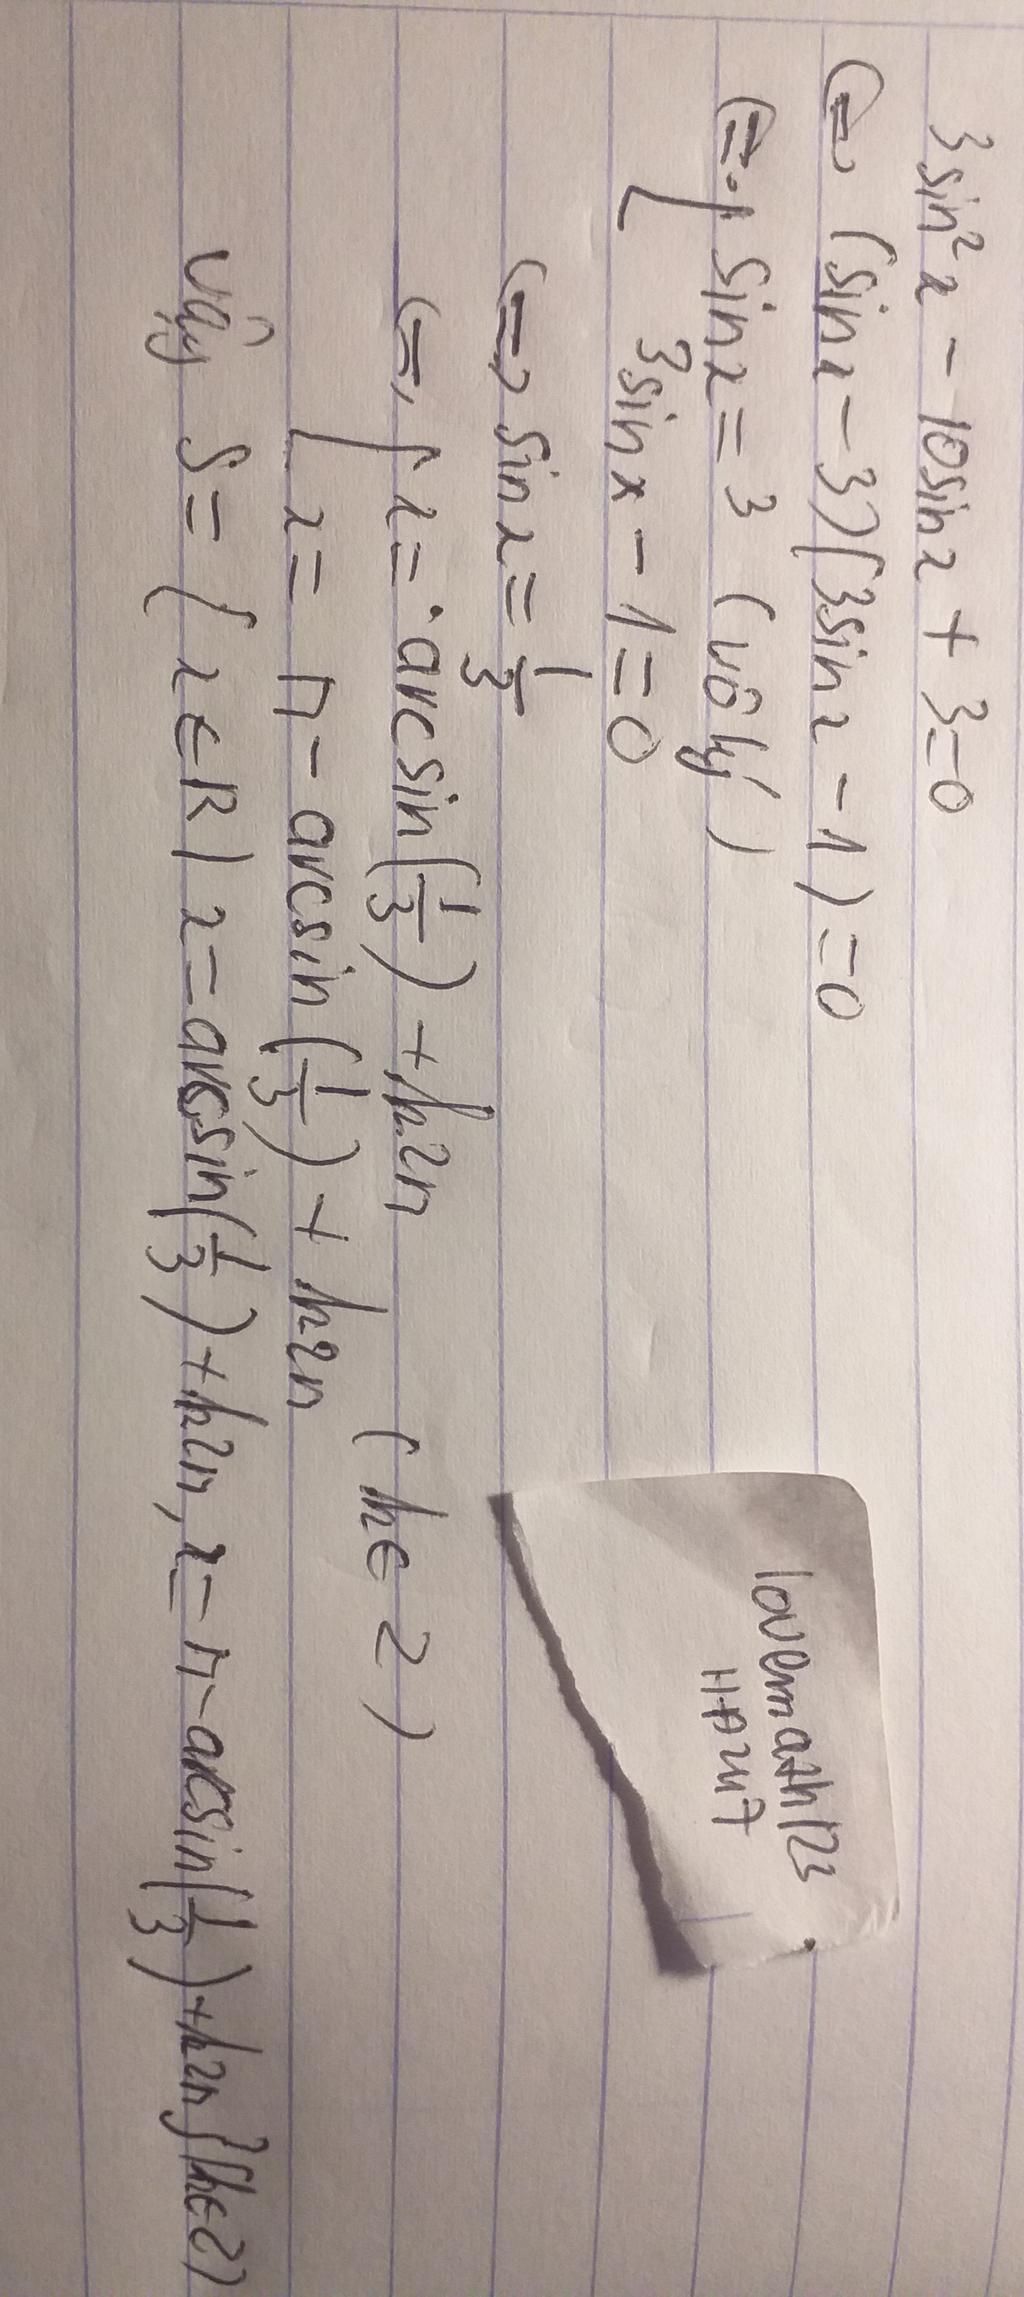 3sin²x - 10sinx + 3=0
<=> (sinx - 3)(3sinx - 1)=0
<=> [ sinx = 3 (vô lý)
3sinx - 1=0
<=> sinx = 1/3
<=> [ x = arcsin(1/3) + k2π
x = π - arcsin(1/3) + k2π (k∈Z)
Vậy S = { x∈R | x=arcsin(1/3)+k2π, x=π-arcsin(1/3)+k2π} (k∈Z)
lovemath123